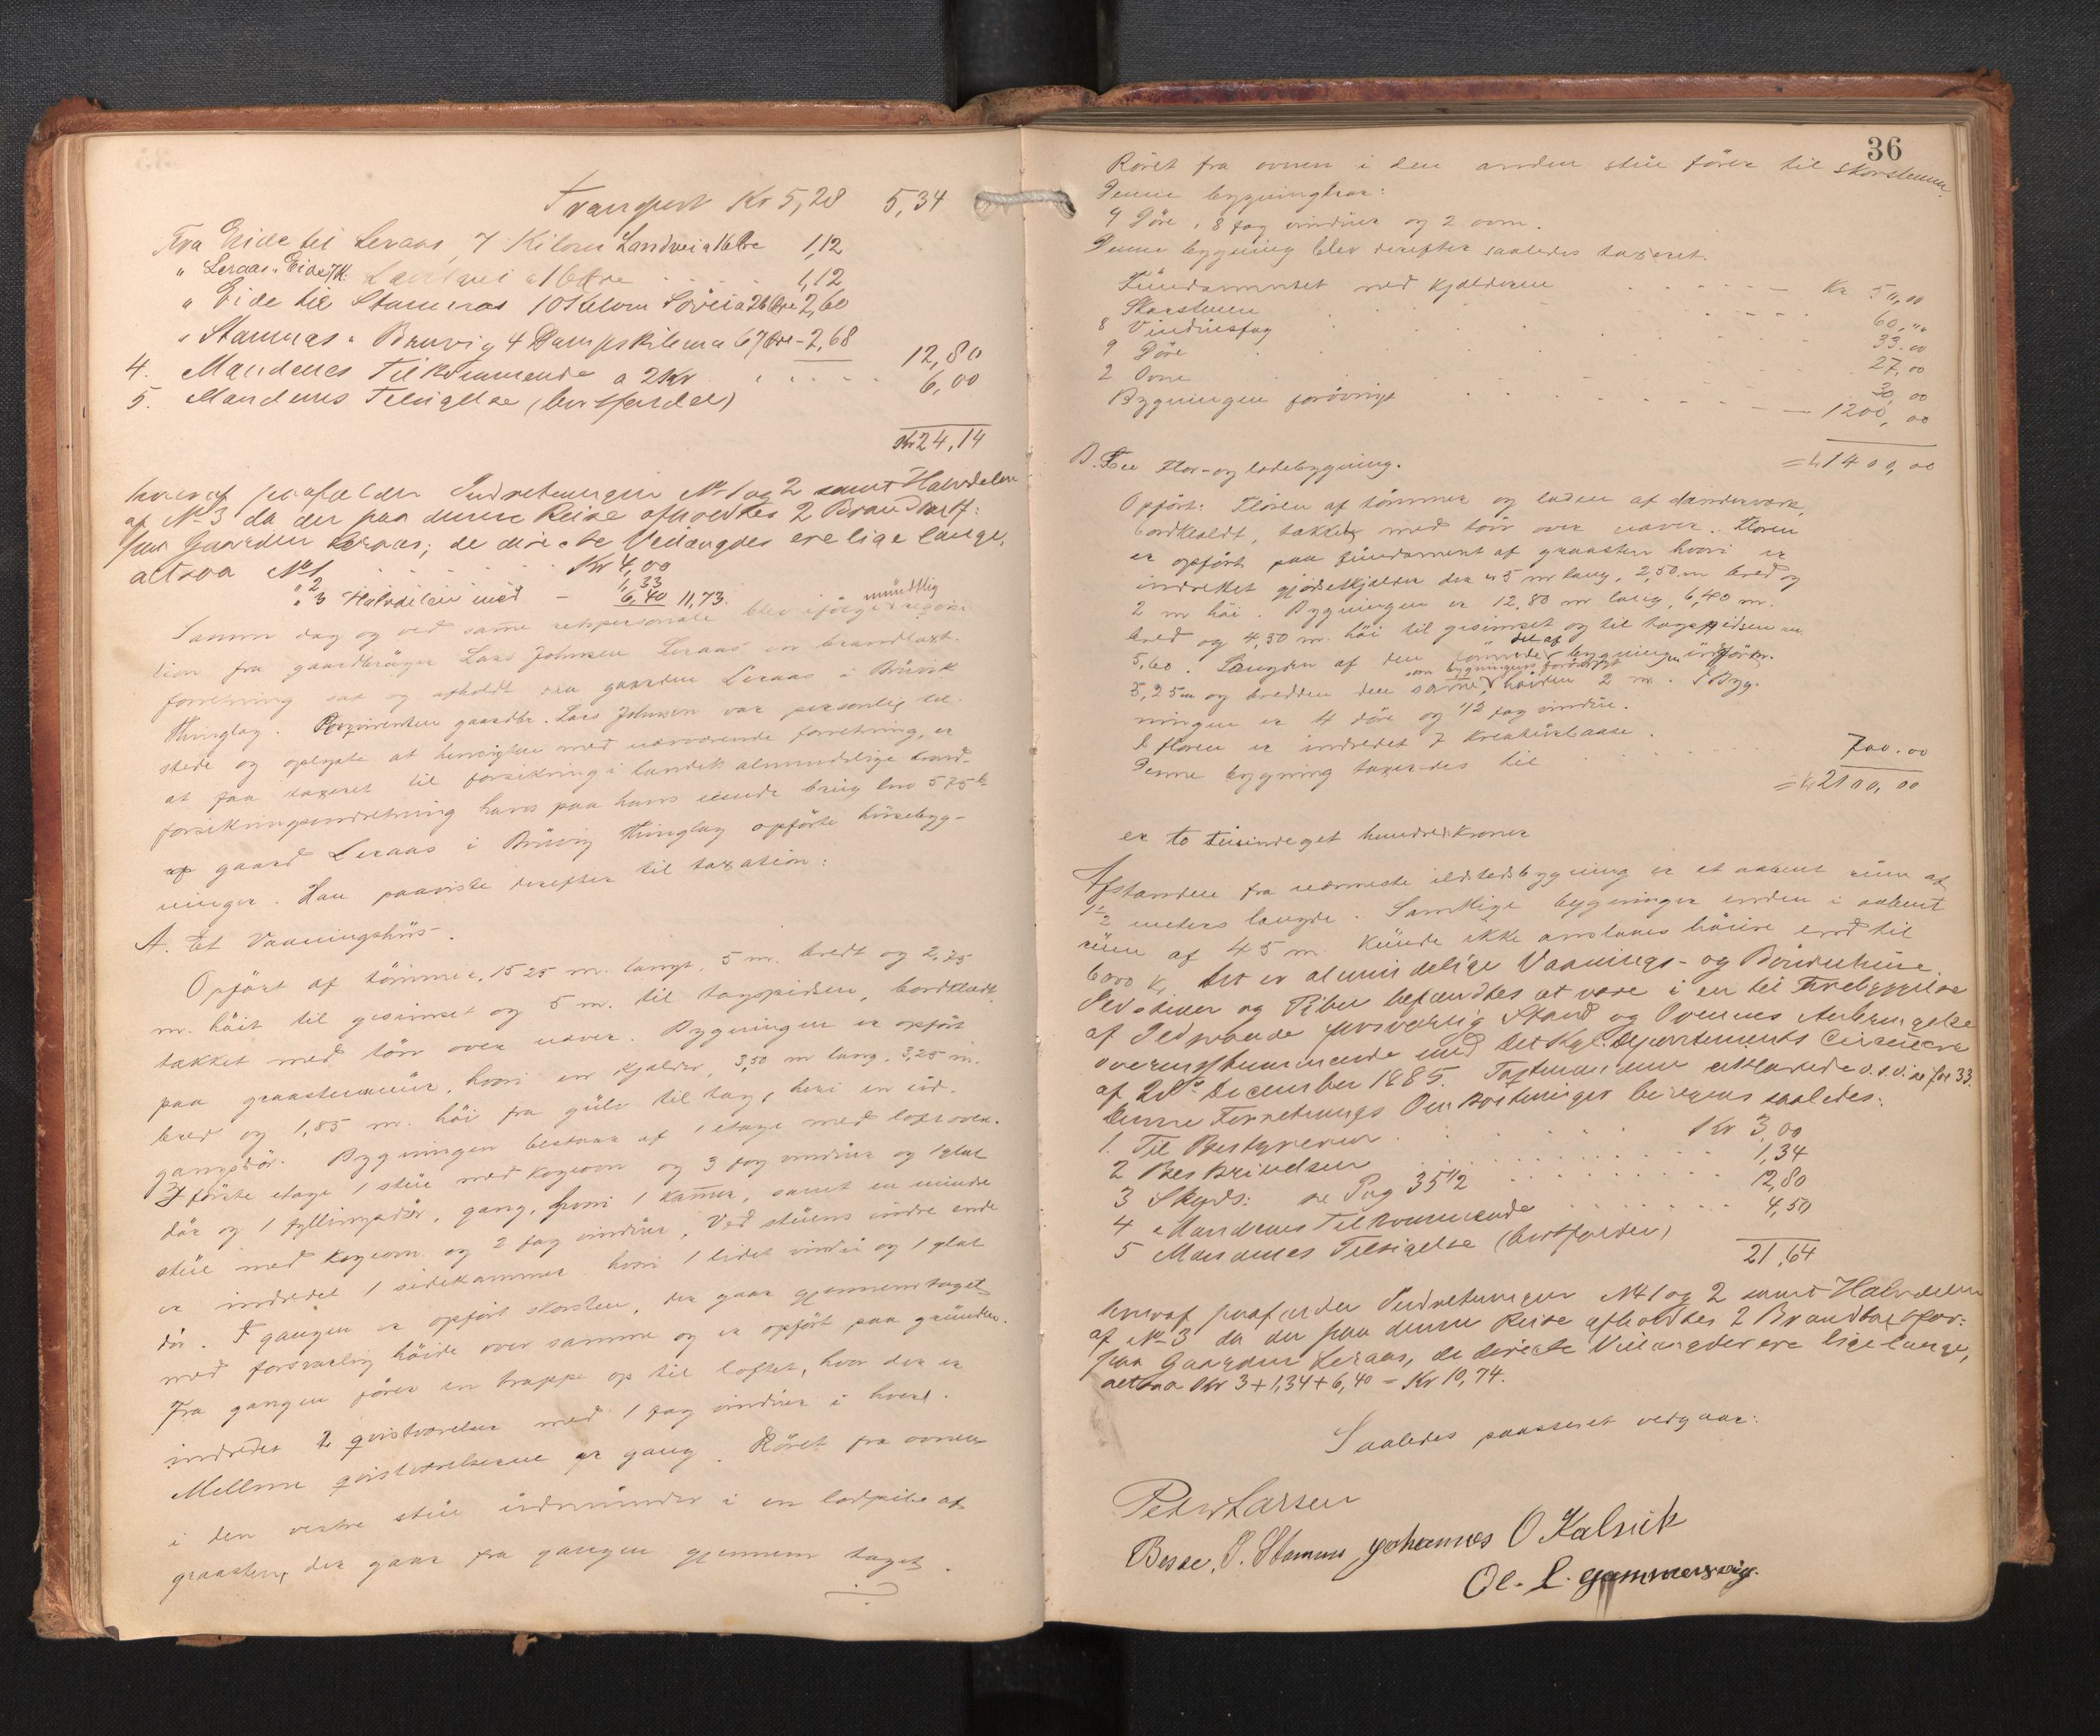 Transport Kr 5,28 5,34
Fra Eide til Leraas, 7 Kilom Landvei a 16 Øre 1,12
" Leraas " Eide 7 K. Landvei a 16 Øre 1,12
" Eide til Stamnæs 10 Kilom Søvei a 26 Øre 2,60
" Stamnæs " Bruvig 4 Dampskibsm a 67 Øre - 2,68
12,80
4. Mændenes Tilkommende a 2 Kr 6,00
5. Mændenes Tilsigelse (bortfalder)
Kr 24,14
hvoraf paafalder Indretningen No 1 og 2 samt Halvdelen
af No 3 da der paa denne Reise afholdtes 2 Brandtaxtf:
paa Gaarden Leraas; de directe Veilængder ere lige lange,
altsaa No 1 Kr 4,00
" 2 1,33
" 3 Halvdelen med - 6,40 11,73.
Samme dag og ved samme retspersonale blev ifølge mündtlig requisi-
tion fra gaardbrüger Lars Johnsen Leraas en brandtaxt-
forretning sat og afholdt paa gaarden Leraas i Brüvik
thinglag. Requirenten gaardbr. Lars Johnsen var personlig til-
stede og oplyste at hensigten med nærværende forretning, er
at faa taxeret til forsikring i landets almindelige brand-
forsikringsindretning hans paa hans eiende brüg lno 575 b
af gaard Leraas i Brüvig thinglag opførte hüsebyg-
ninger. Han paaviste derefter til taxation:
A. Et Vaaningshüs-.
Opført af tømmer, 15 25 m. langt, 5 m. bredt og 2,75
m. høit til gesimset og 5 m. til tagspidsen, bordklædt,
takket med törv over næver. Bygningen er opført
paa graasteenmür, hvori en kjælder, 3,50 m lang, 3,25 m.
bred og 1,85 m. høi fra gülv til tag, heri en ind-
gangsdør. Bygningen bestaar af 1 etage med loft over.
I første etage 1 stüe med kogeovn og 3 fag vindüer og 1 glat
dør og 1 fyllingsdør, gang, hvori 1 kammer, samt en mindre
stüe med kogeovn og 2 fag vindüer. Ved stüens indre ende
er indredet 1 sidekammer hvori 1 lidet vindü og 1 glat
dør. I gangen er opført skorsten, der gaar gjennem taget
med forsvarlig høide over samme og er opført paa gründen.
Fra gangen fører en trappe op til loftet, hvor der er
indredet 2 qvistværelser med 1 fag vindüer i hvert.
Mellem qvistværelserne er gang. Røret fra ovnen
i den vestre stüe üdmünder i en lodpibe af
graasten, der gaar fra gangen gjennem taget.
36
Røret fra ovnen i den anden stüe fører til skorstenen.
Denne bygning har:
9 Døre, 8 fag vindüer og 2 ovne.
Denne bygning blev derefter saaledes taxeret.
Fündamentet med kjælderen Kr 50,00
Skorstenen 60,"
8 Vindüesfag 33.00
9 Døre 27,00
2 Ovne 30,00
Bygningen forøvrigt 1200,00
= kr 1400,00
B. En Flor- og ladebygning.
Opført: Floren af tömmer og laden af standerværk,
bordklædt, takket med törv over næver. Floren
er opført paa fündament af graasten hvori er
indrettet gjødselkjælder der er 5 m lang, 2,50 m bred og
2 m høi. Bygningen er 12,80 m lang, 6,40 m.
bred og 4,50 m. høi til gesimset og til tagspidsen m.
5,60. Længden af den tømrede del af bygningen üdgjør m.
5,25 m og bredden den samme som bygningens forøvrigt, høiden 2 m. I Byg-
ningen er 4 døre og 1/2 fag vindüe.
I floren er indredet 7 Kreatürbaase.
Denne bygning taxeredes til 700.00
= kr 2100,00
er to tüsinde et hundrede kroner
Afstanden fra nærmeste ildstedsbygning er et aabent rüm af
1 1/2 meters længde. Samtlige bygninger inden i aabent
rüm af 45 m. künde ikke anslaaes høiere end til
6000 Kr. Det er almindelige Vaanings- og Bøndershüse.
Ildstæder og Piber befandtes at være i en til Forebyggelse
af Ildsvaade forsvarlig Stand og Ovnenes Anbringelse
overensstemmende med Det Kgl. Departements Circulære
af 21de December 1885. Taxtmændene erklærede o.s.v. se fol 33.
Denne Forretnings Omkostninger beregnes saaledes:
1. Til Bestyreren Kr 3,00
2 Beskrivelsen 1,34
3 Skyds: se Pag 35 1/2 12,80
4 Mændenes Tilkommende 4,50
5 Mændenes Tilsigelse (bortfalder)
21,64
hvoraf paafalder Indretningen No 1 og 2 samt Halvdelen
af No 3 da der paa denne Reise afholdtes 2 Brandtaxtfor:
paa Gaarden Leraas, de directe Veilængder ere lige lange,
altsaa Kr 3 + 1,34 + 6,40 = Kr 10,74.
Saaledes passeret vedgaar:
Peder Larsen
Besse. J. Stamnes Johannes O Kalvik
Ol. L. Gammersvig.